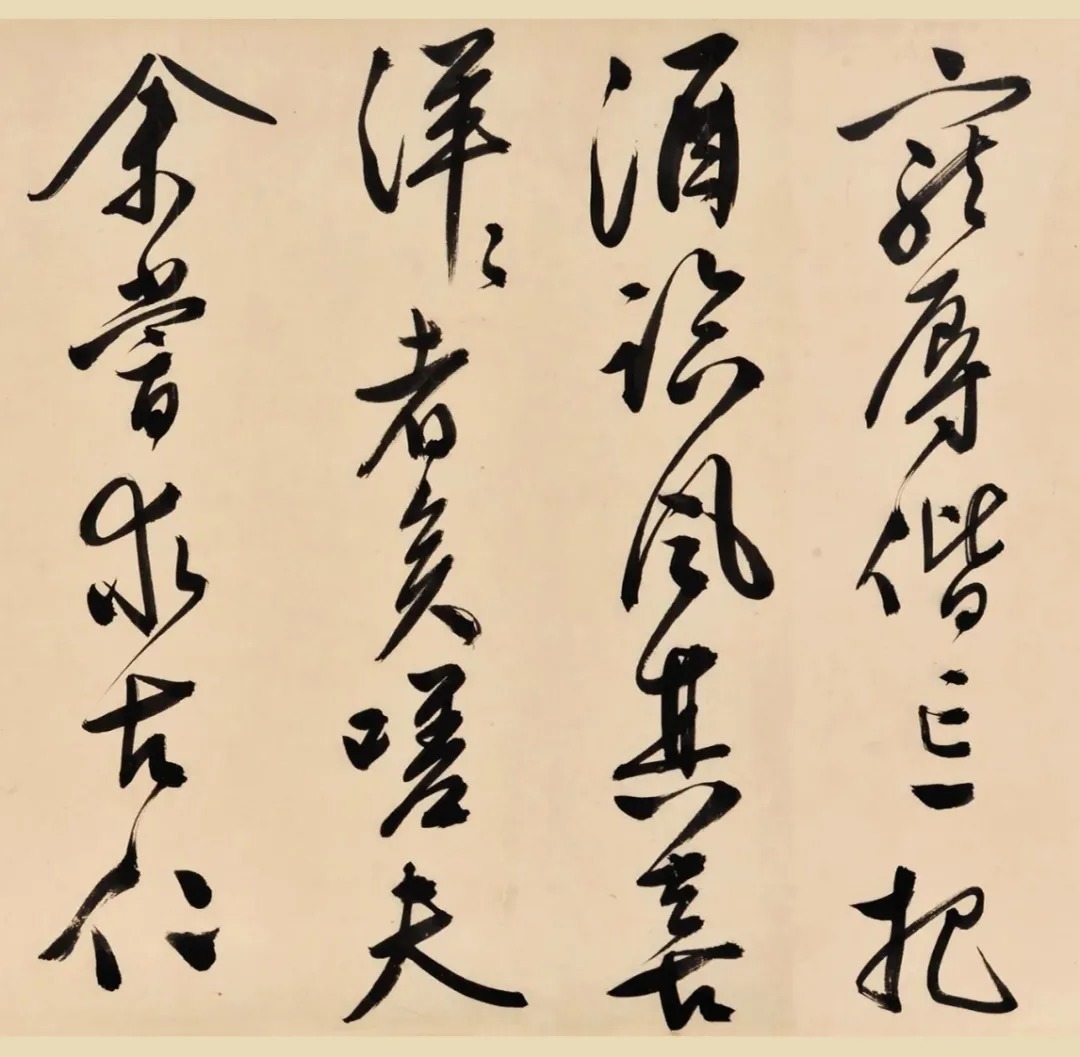 寵辱偕忘把
酒臨風其喜
洋〻者矣嗟夫
余嘗求古仁